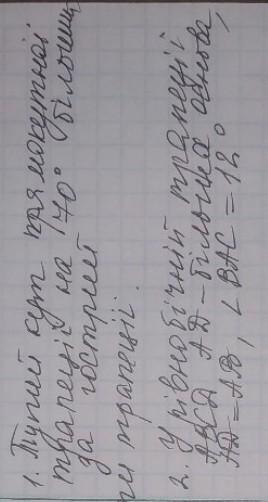 1. Тупий кут прямокутної
трапеції на 70° більший
за гострий
ти трапеції.
2. У рівнобічній трапеції
ABCD AD - більша основа,
AD = AB, ∠BAC = 12°